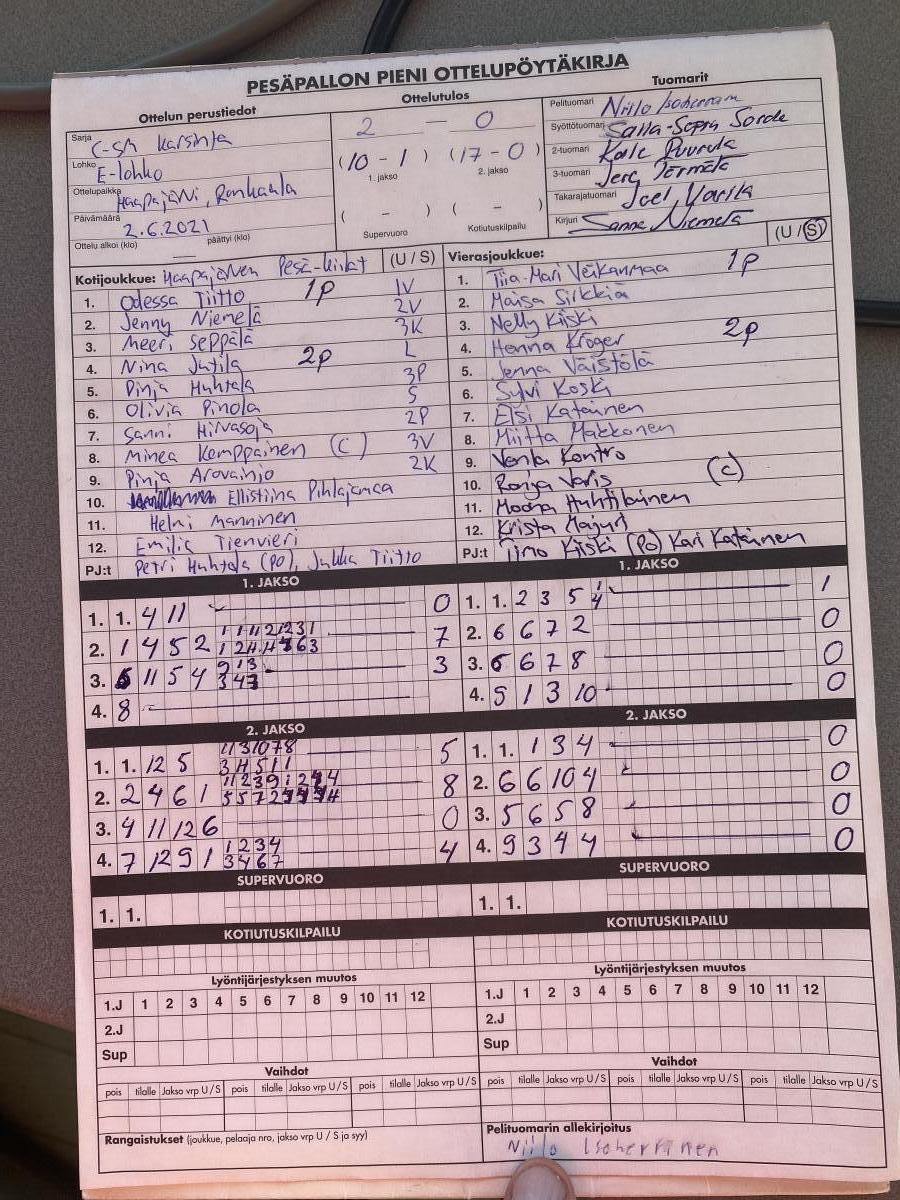 PESÄPALLON PIENI OTTELUPÖYTÄKIRJA
Ottelun perustiedot
Sarja C-sm karsinta
Lohko E-lohko
Ottelupaikka Haapajärvi, Ronkaala
Päivämäärä 2.6.2021
Ottelu alkoi (klo) päättyi (klo)
Ottelutulos
2 — 0
(10 - 1) (17 - 0)
1. jakso 2. jakso
( - ) ( - )
Supervuoro Kotiutuskilpailu
Tuomarit
Pelituomari Niilo
Syöttötuomari Salla-Sofia Sorde
2-tuomari Kalle Puurula
3-tuomari Jere Törmälä
Takarajatuomari Joel
Kirjuri Sanna Niemelä
Kotijoukkue: Haapajärven Pesä-Kiilat (U / S)
1. Odessa Tiitto 1p 1V
2. Jenny Niemelä 2V
3. Meeri Seppälä 3K
4. Nina Jutila 2p L
5. Pinja Huhtala 3P
6. Olivia Pinola S
7. Sanni Hirvasoja 2P
8. Minea Kemppainen (C) 3V
9. Pinja Arovainio 2K
10. Ellistiina Pihlajamaa
11. Helmi Manninen
12. Emilia Tienvieri
PJ:t Petri Huhtala (PO), Jukka Tiitto
Vierasjoukkue: (U / S)
1. Tiia-Mari Veikanmaa 1p
2. Maisa Sirkkiä
3. Nelly Kiiski
4. Henna Kröger 2p
5. Jenna Väistölä
6. Sylvi Koski
7. Elsi Katainen
8. Miitta Makkonen
9. Venla Kontro
10. Ronja Varis (C)
11. Moona Huhtilainen
12. Krista Majuri
PJ:t Timo Kiiski (PO) Kari Katainen
1. JAKSO
1. 1. 4 11 0
2. 1 4 5 2 7
3. 11 5 4 3
4. 8
1. JAKSO
1. 1. 2 3 5 4 1
2. 6 6 7 2 0
3. 6 6 7 8 0
4. 9 1 3 10 0
2. JAKSO
1. 1. 12 5 5
2. 2 4 6 1 8
3. 4 11 12 6 0
4. 7 12 9 1 1 2 3 4 3 4 6 7 4
2. JAKSO
1. 1. 1 3 4 0
2. 6 6 10 4 0
3. 5 6 5 8 0
4. 9 3 4 4 0
SUPERVUORO
1. 1.
SUPERVUORO
1. 1.
KOTIUTUSKILPAILU
KOTIUTUSKILPAILU
Lyöntijärjestyksen muutos
1.J 1 2 3 4 5 6 7 8 9 10 11 12
2.J
Sup
Lyöntijärjestyksen muutos
1.J 1 2 3 4 5 6 7 8 9 10 11 12
2.J
Sup
Vaihdot
pois tilalle Jakso vrp U / S pois tilalle Jakso vrp U / S pois tilalle Jakso vrp U / S
Vaihdot
pois tilalle Jakso vrp U / S pois tilalle Jakso vrp U / S pois tilalle Jakso vrp U / S
Rangaistukset (joukkue, pelaaja nro, jakso vrp U / S ja syy)
Pelituomarin allekirjoitus
Niilo Isoherranen